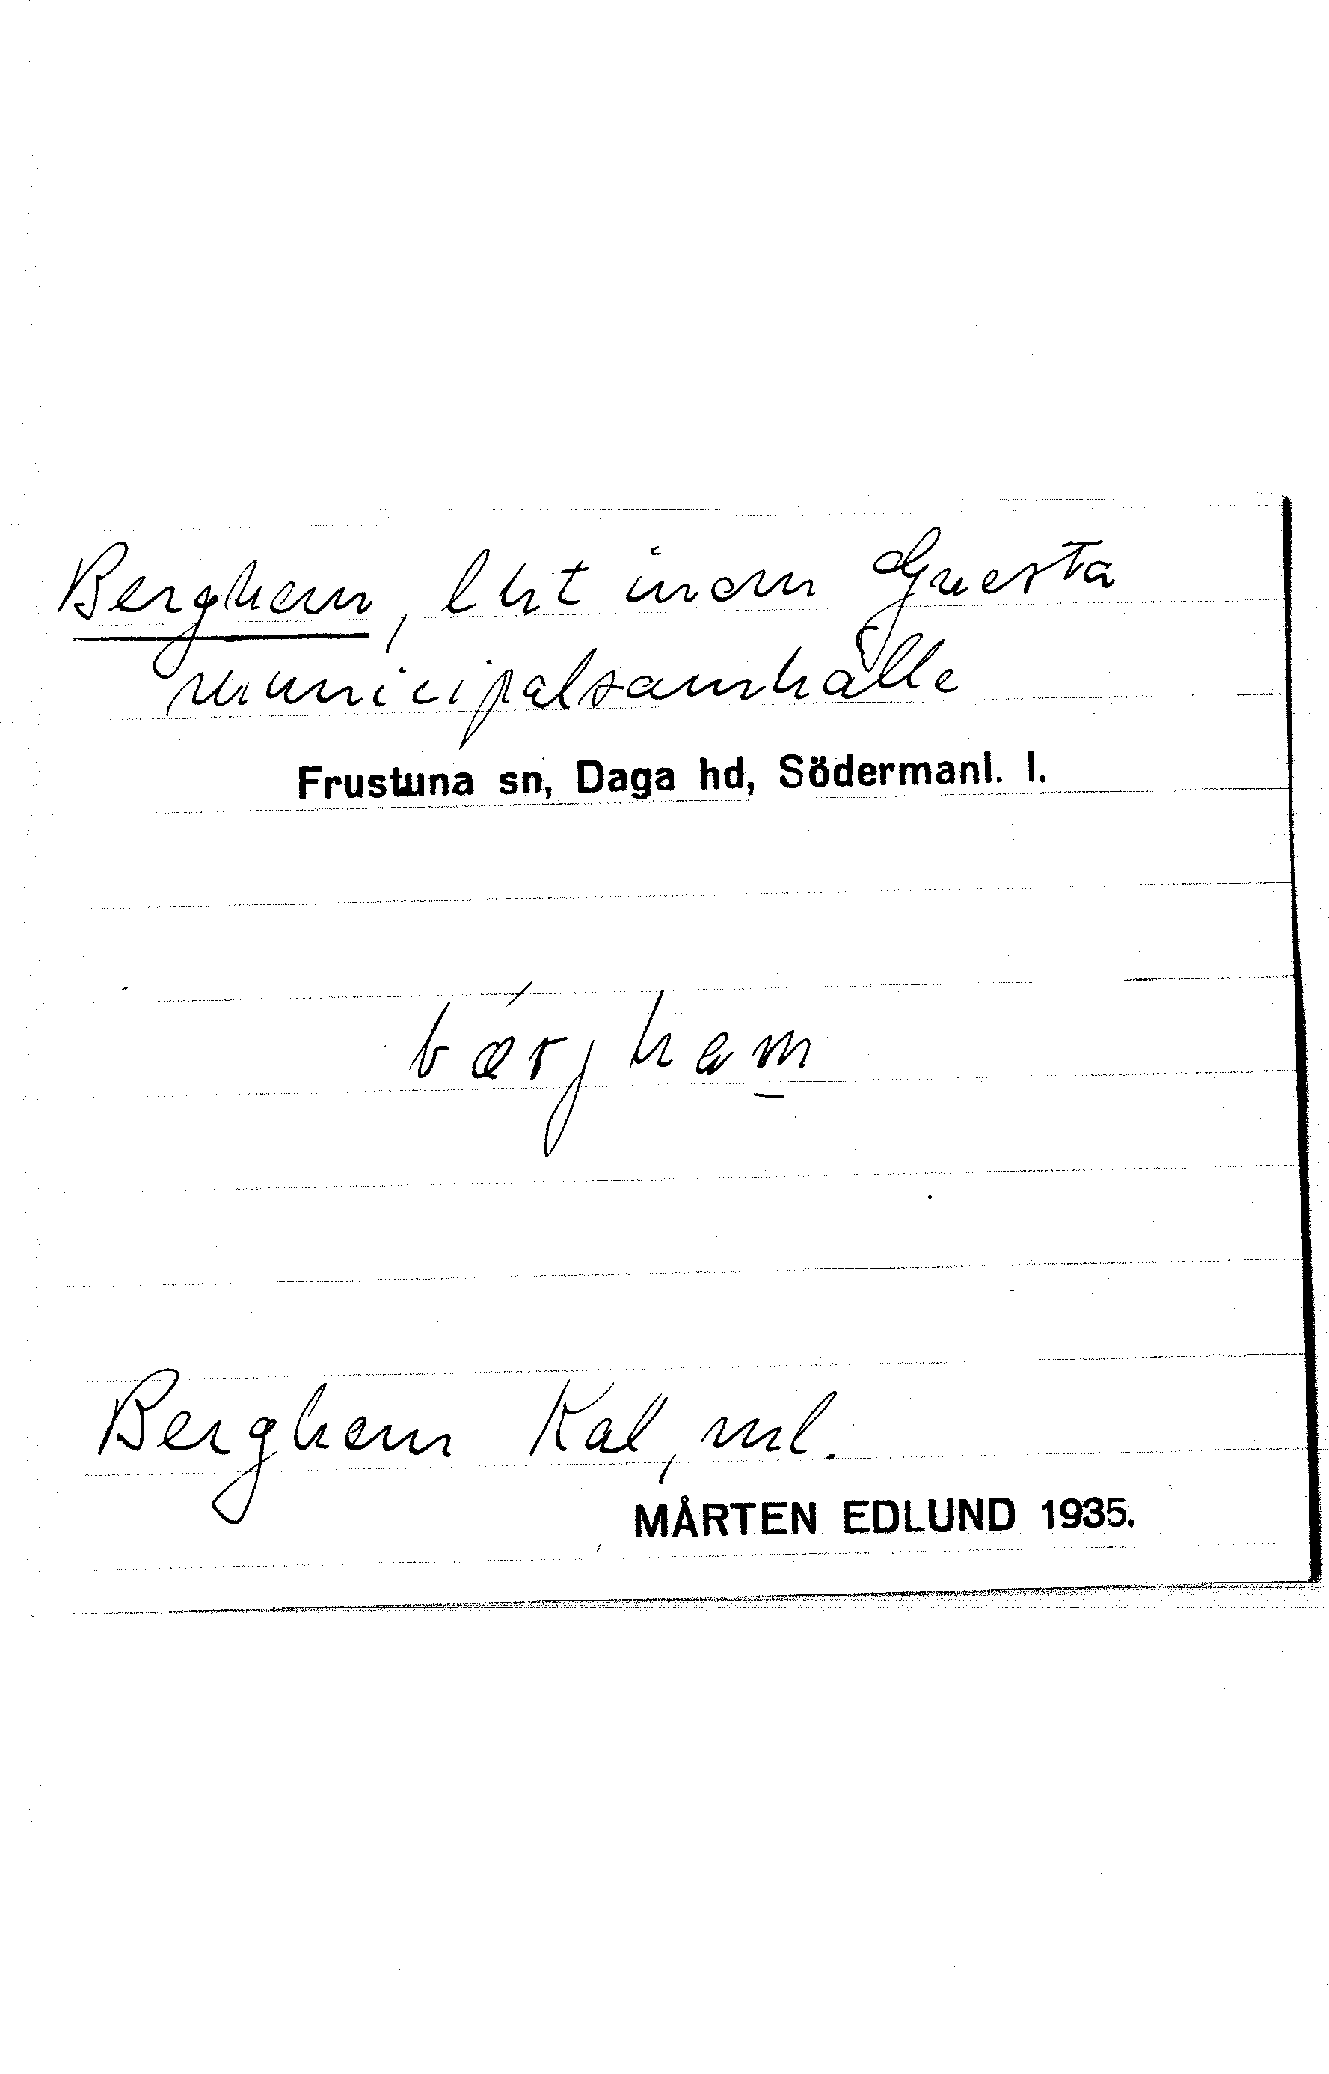 Berghem, lht inom Gnesta
municipalsamhälle
Frustuna sn, Daga hd, Södermanl. l.
bǽrjham̲
Berghem Kal, ml.
MÅRTEN EDLUND 1935.